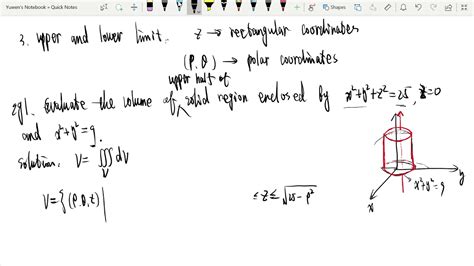 Yuwen's Notebook » Quick Notes
Shapes
3. upper and lower limit.
z → rectangular coordinates
(ρ, θ) → polar coordinates
upper half of
eg1. Evaluate the volume of ∧ solid region enclosed by x²+y²+z²=25, z=0
and x²+y²=9.
Solution. V = ∭_V dV
V = {(ρ, θ, z) |
≤ z ≤ √25-ρ²
x
y
x²+y²=9